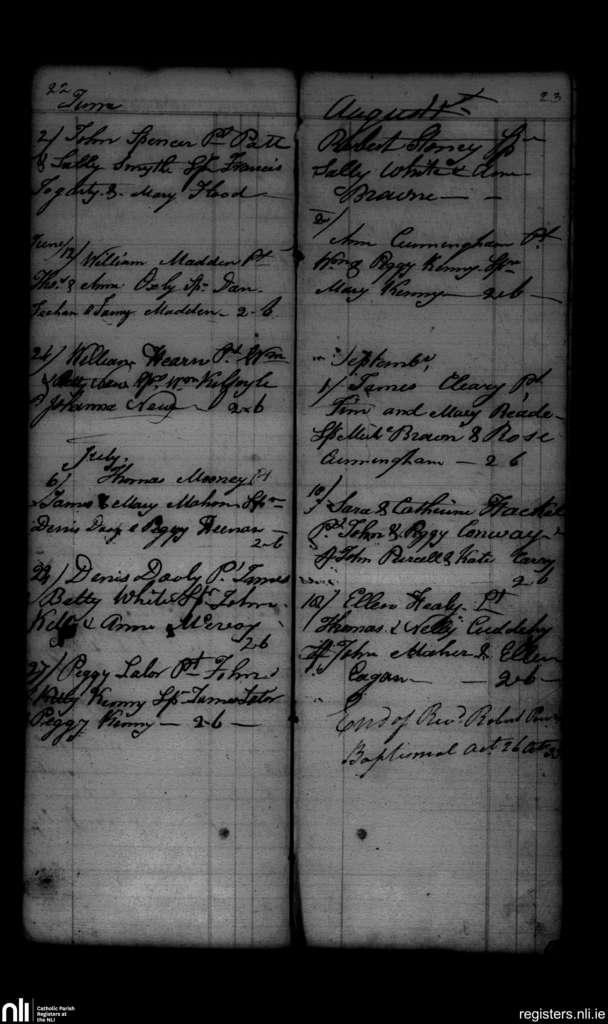 22
June
2/ John Spencer Pt Patt
& Sally Smythe Sp Francis
Fogarty & Mary Flood
June/12/ William Madden Pt
Thos & Ann Sp Dan
Feehan & Fanny Madden - 2-6
24/ William Hearn Pt Wm
Wm Kilfoyle
Johanna - 2-6
July
6/ Thomas Mooney Pt
James & Mary Mahon Sp
Denis & Peggy Heenan
2-6
22/ Denis Dooly Pt James
Betty White Sp John
Kelly & Anne McEvoy
2-6
27/ Peggy Lalor Pt John
Kenny Sp James Lalor
Peggy Kenny - 2-6 -
23
August
Robert Stoney Sp
Sally White & Ann
Browne - -
2/
Ann Cunningham Pt
Wm & Peggy Kenny Sp
Mary Kenny - 2-6 -
September
1/ James Cleary Pt
Tim and Mary Reade
Sp Michl Brown & Rose
Cunningham - 2 6
10/ Sara & Catherine
Pt John & Peggy Conway
Sp John Purcell & Kate
2-6
18/ Ellen Healy Pt
Thomas & Nelly Cuddihy
Sp John Maher & Ellen
Eagan - - 2-6 -
End of Revd Robert
Baptismal act 26
nli
Catholic Parish
Registers at
the NLI
registers.nli.ie